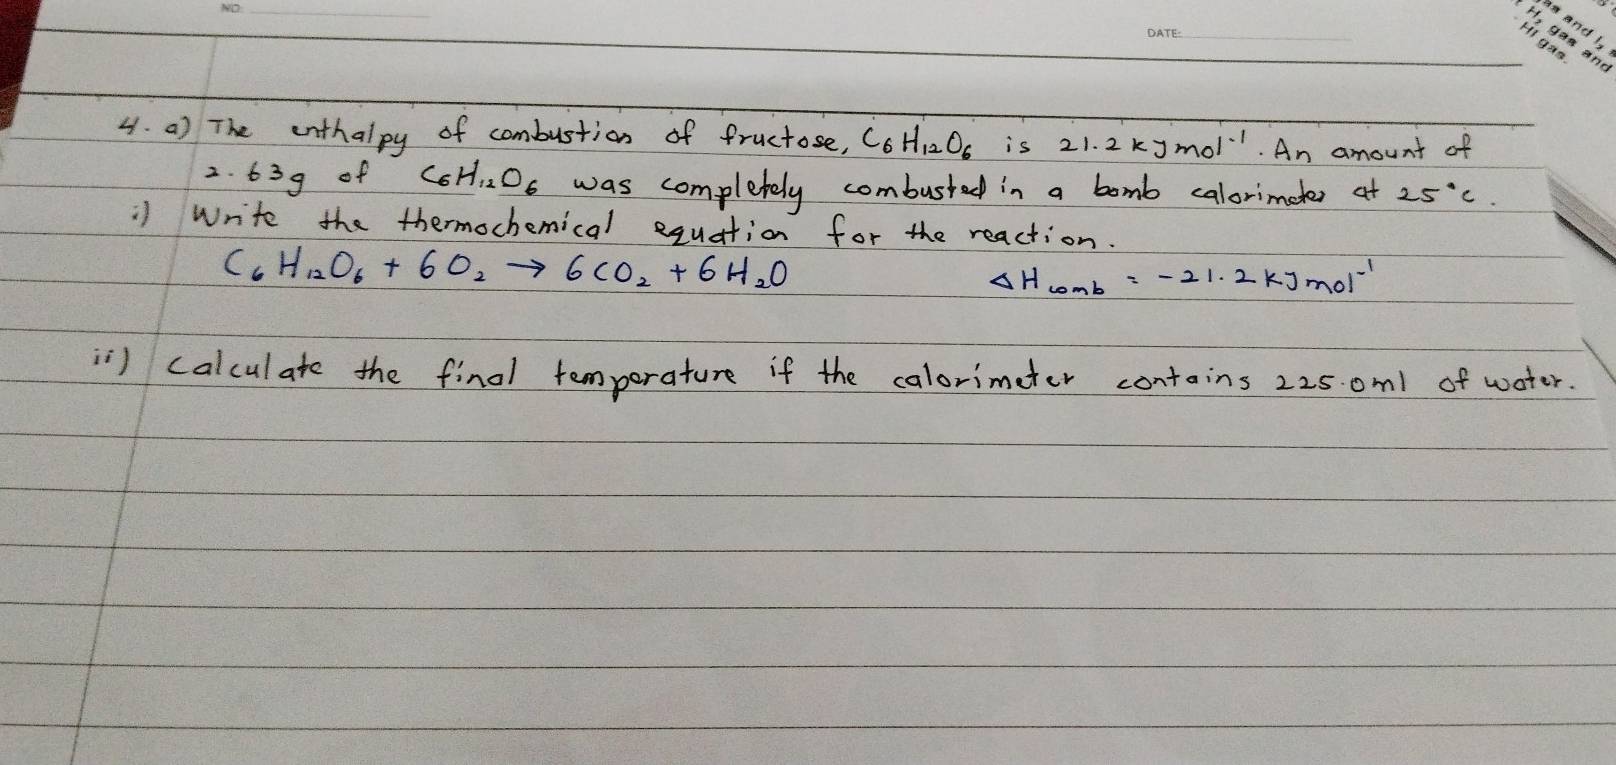 NO:
DATE:
and I₂
H₂ gas and
HI gas.
4. a) The enthalpy of combustion of fructose, C₆H₁₂O₆ is 21.2 kJ mol⁻¹. An amount of
2.63g of C₆H₁₂O₆ was completely combusted in a bomb calorimeter at 25°C.
i) Write the thermochemical equation for the reaction.
C₆H₁₂O₆ + 6O₂ → 6CO₂ + 6H₂O ΔH comb = -21.2 kJ mol⁻¹
ii) Calculate the final temperature if the calorimeter contains 225.0ml of water.